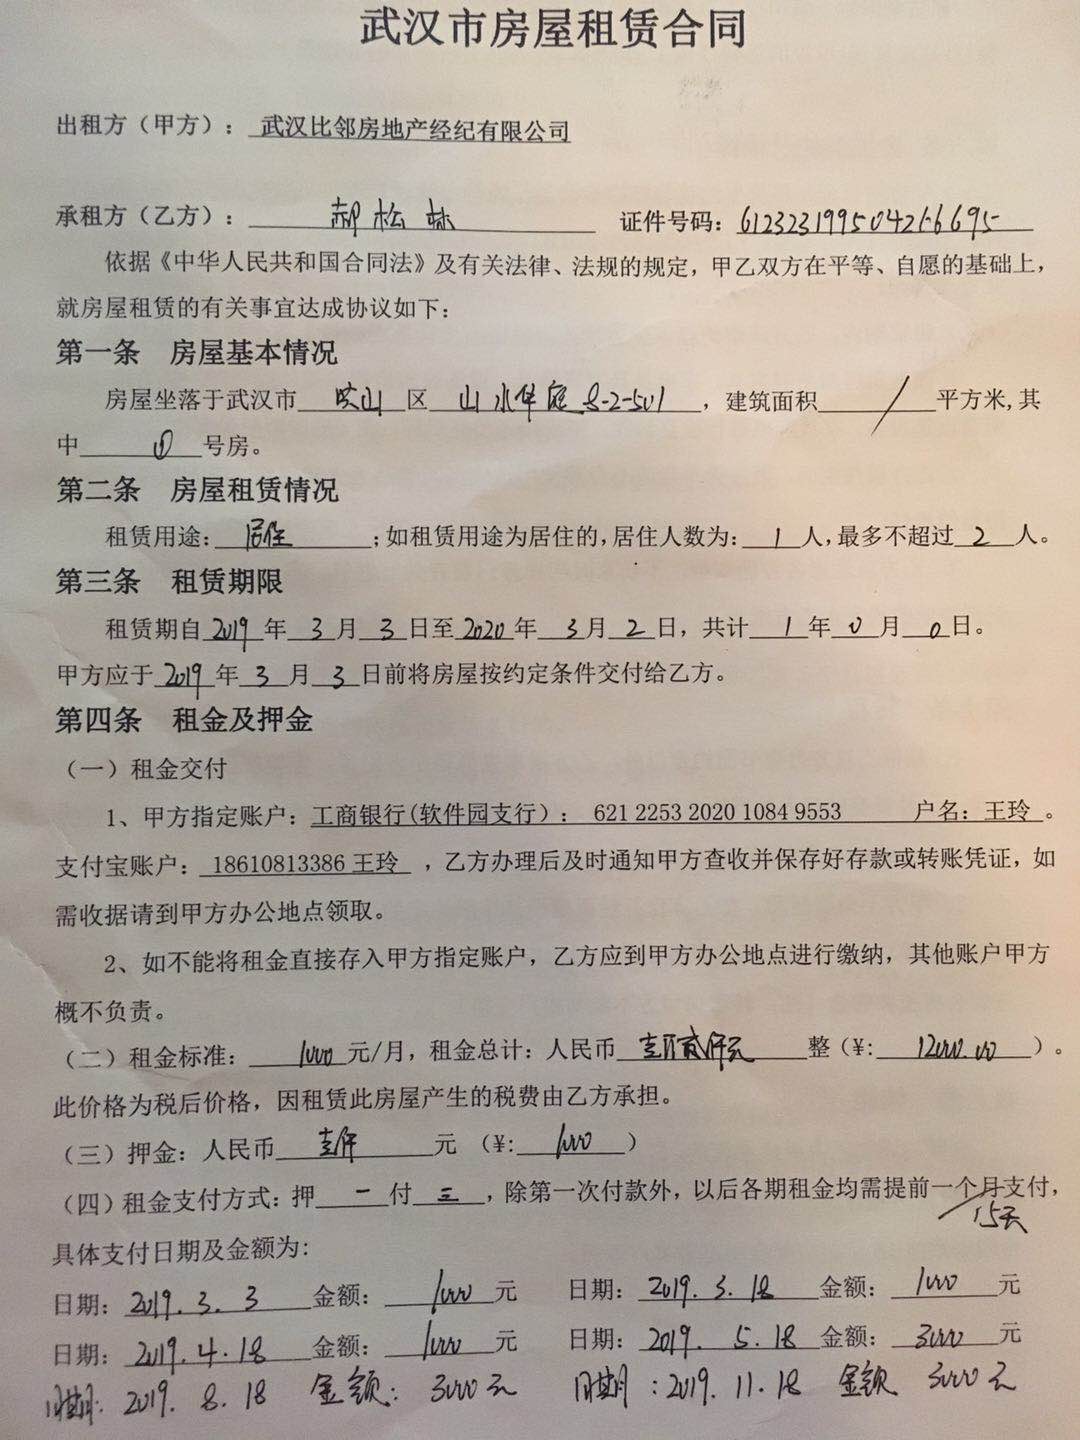 武汉市房屋租赁合同
出租方（甲方）：武汉比邻房地产经纪有限公司
承租方（乙方）：郝松林 证件号码：612323199504266695
依据《中华人民共和国合同法》及有关法律、法规的规定，甲乙双方在平等、自愿的基础上，
就房屋租赁的有关事宜达成协议如下：
第一条 房屋基本情况
房屋坐落于武汉市 洪山 区 山水华庭 8-2-501，建筑面积 / 平方米,其
中 号房。
第二条 房屋租赁情况
租赁用途：居住；如租赁用途为居住的,居住人数为：1人,最多不超过2人。
第三条 租赁期限
租赁期自2019年3月3日至2020年3月2日，共计1年0月0日。
甲方应于2019年3月3日前将房屋按约定条件交付给乙方。
第四条 租金及押金
（一）租金交付
1、甲方指定账户：工商银行(软件园支行)： 621 2253 2020 1084 9553 户名：王玲。
支付宝账户：18610813386 王玲，乙方办理后及时通知甲方查收并保存好存款或转账凭证，如
需收据请到甲方办公地点领取。
2、如不能将租金直接存入甲方指定账户，乙方应到甲方办公地点进行缴纳，其他账户甲方
概不负责。
（二）租金标准：1000元/月，租金总计：人民币 壹万贰仟元 整（¥:12000.00）。
此价格为税后价格，因租赁此房屋产生的税费由乙方承担。
（三）押金：人民币 壹仟 元（¥:1000）
（四）租金支付方式：押 一 付 三，除第一次付款外，以后各期租金均需提前一个月支付，
15天
具体支付日期及金额为:
日期：2019.3.3 金额：1000元 日期：2019.3.18 金额：1000元
日期：2019.4.18 金额：1000元 日期：2019.5.18 金额：3000元
日期：2019.8.18 金额：3000元 日期：2019.11.18 金额 3000元